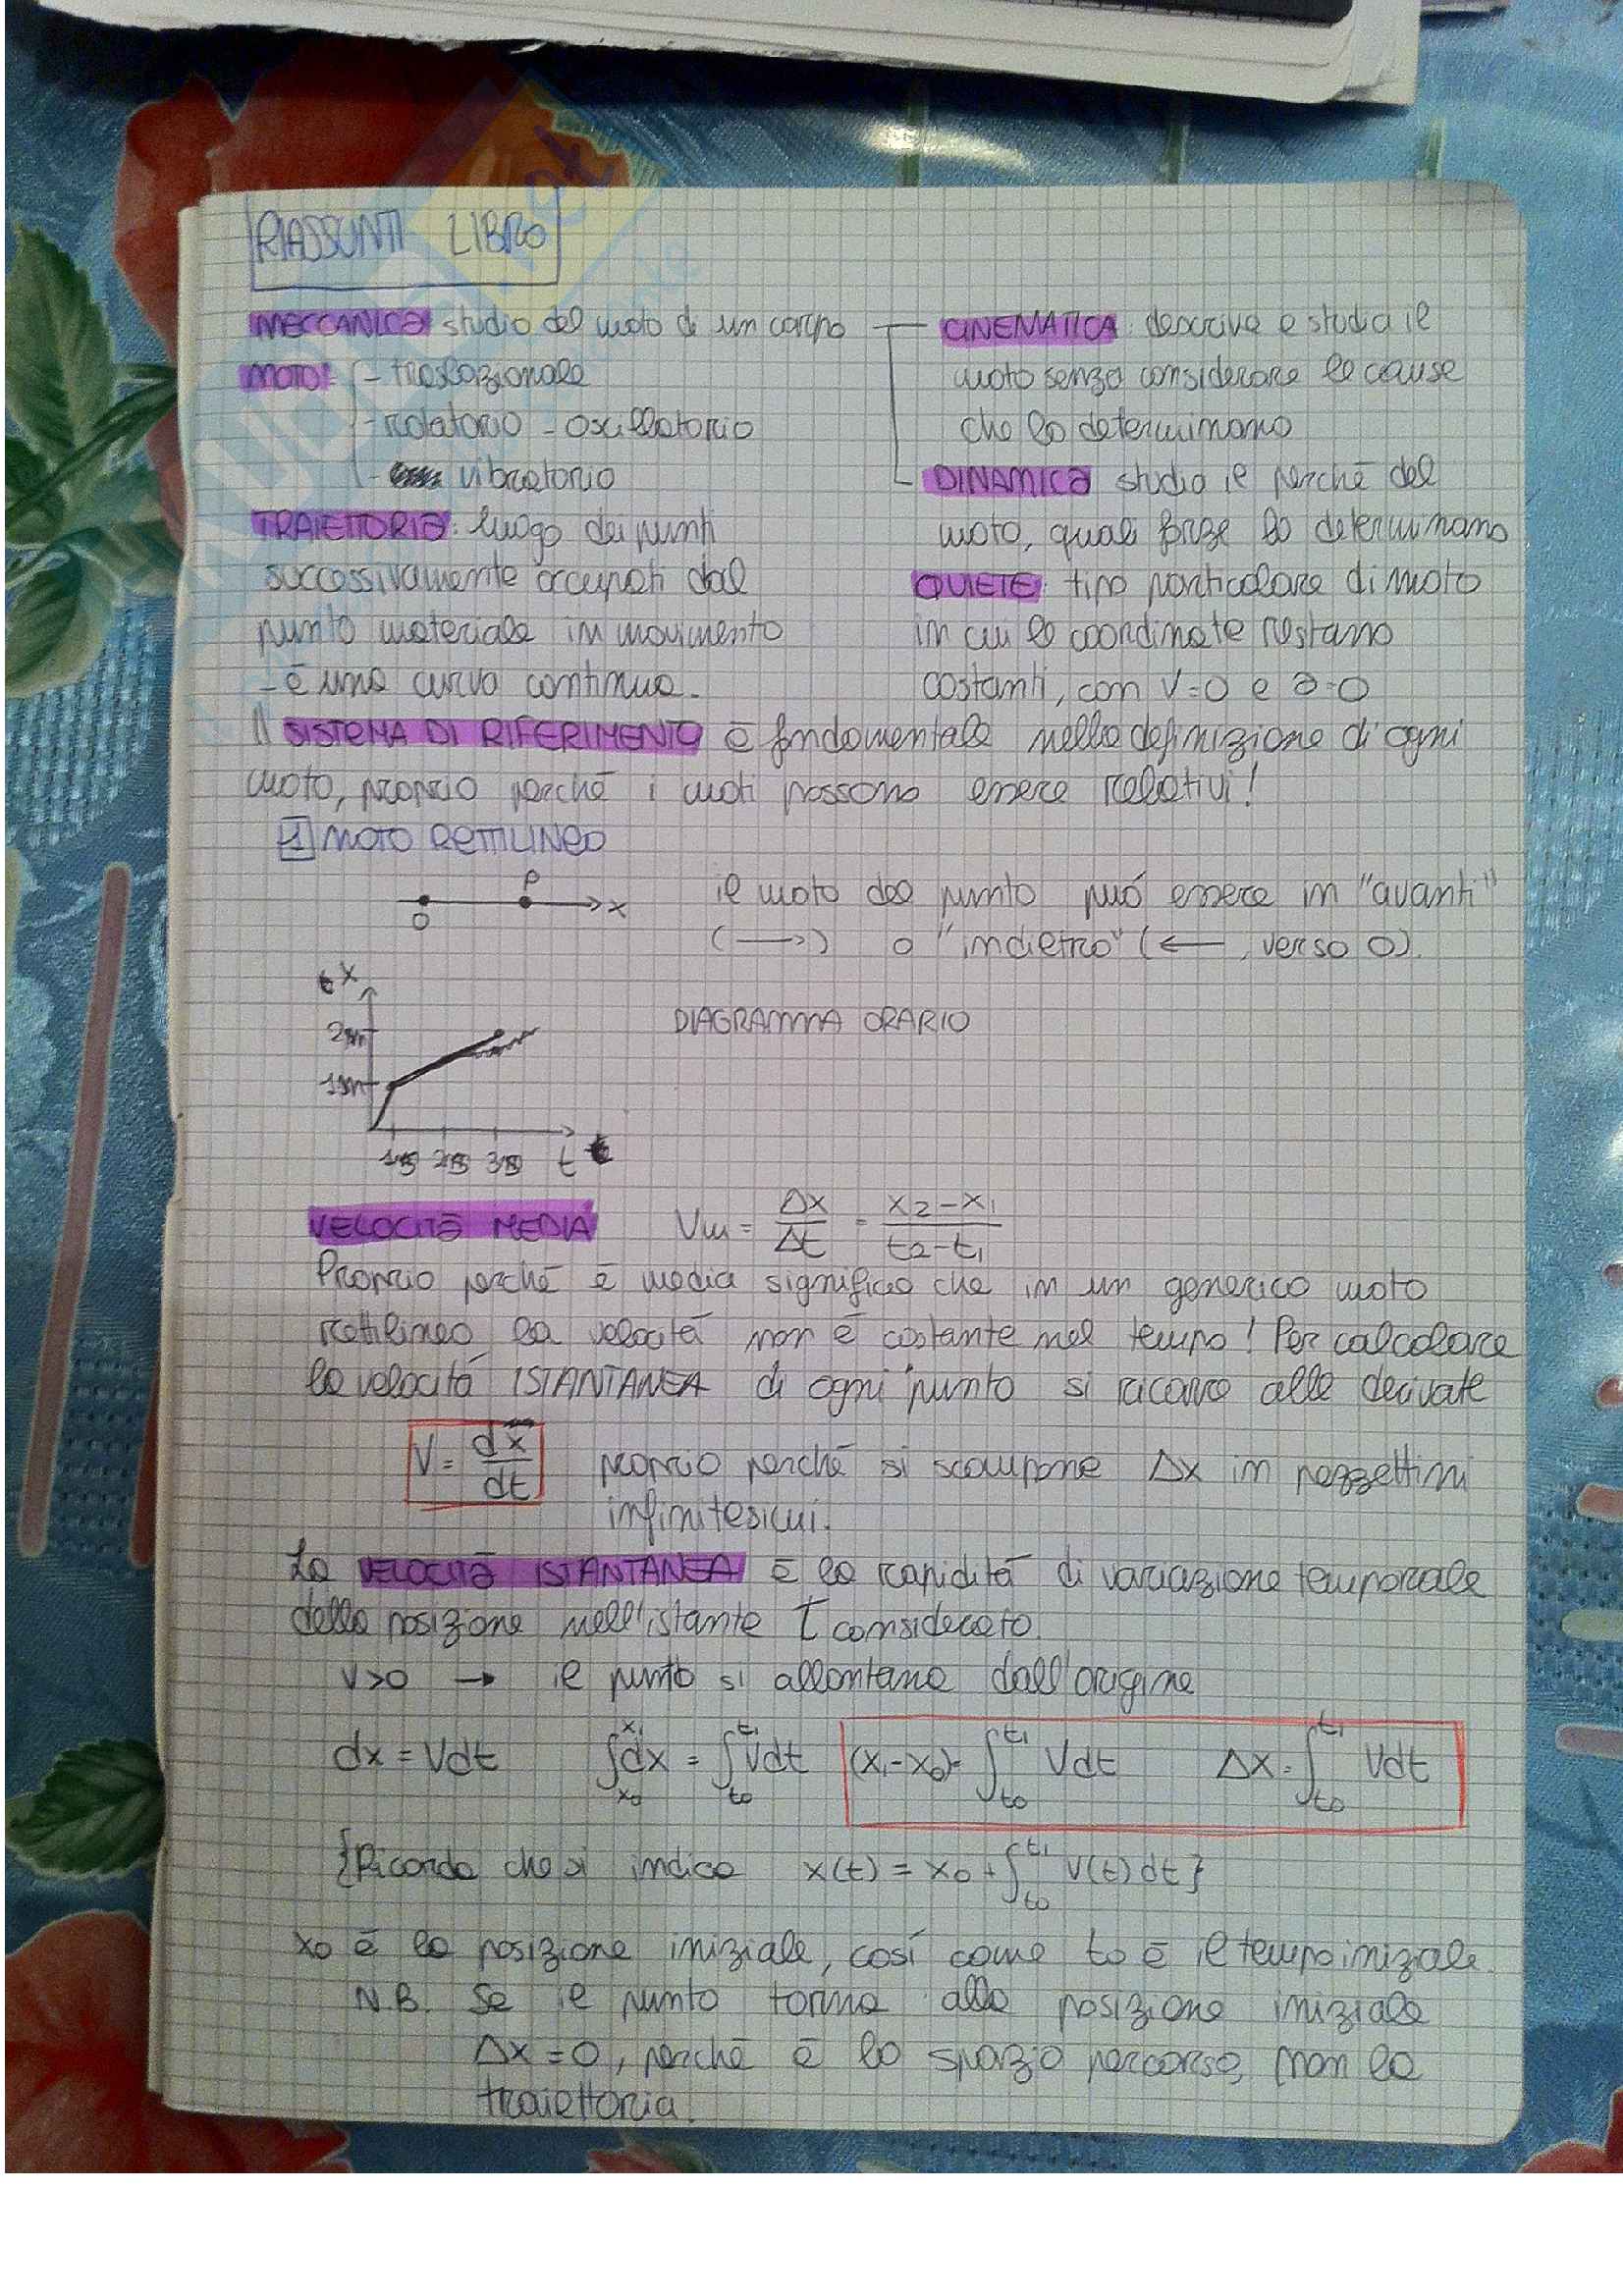 RIASSUNTI LIBRO
MECCANICA studio del moto di un corpo
MOTO: - traslazionale
- rotatorio - oscillatorio
- vibratorio
TRAIETTORIA: luogo dei punti
successivamente occupati dal
punto materiale in movimento
- è una curva continua.
CINEMATICA: descrive e studia il
moto senza considerare le cause
che lo determinano
DINAMICA studia il perché del
moto, quali forze lo determinano
QUIETE: tipo particolare di moto
in cui le coordinate restano
costanti, con V=0 e a=0
Il SISTEMA DI RIFERIMENTO è fondamentale nella definizione di ogni
moto, proprio perché i moti possono essere relativi!
1 MOTO RETTILINEO
O P x
il moto del punto può essere in "avanti"
(→) o "indietro" (←, verso O).
x
2m
1m
1s 2s 3s t
DIAGRAMMA ORARIO
VELOCITÀ MEDIA Vm = Δx/Δt = x2-x1/t2-t1
Proprio perché è media significa che in un generico moto
rettilineo la velocità non è costante nel tempo! Per calcolare
la velocità ISTANTANEA di ogni punto si ricorre alle derivate
V = dx/dt proprio perché si scompone Δx in pezzettini
infinitesimi.
La VELOCITÀ ISTANTANEA è la rapidità di variazione temporale
della posizione nell'istante t considerato.
V>0 → il punto si allontana dall'origine
dx = Vdt ∫x0x1 dx = ∫t0t1 Vdt (x1-x0)= ∫t0t1 Vdt Δx = ∫t0t1 Vdt
{Ricorda che si indica x(t) = x0 + ∫t0t1 V(t) dt}
x0 è la posizione iniziale, così come t0 è il tempo iniziale.
N.B. Se il punto torna alla posizione iniziale
Δx=0, perché è lo spazio percorso, non la
traiettoria.